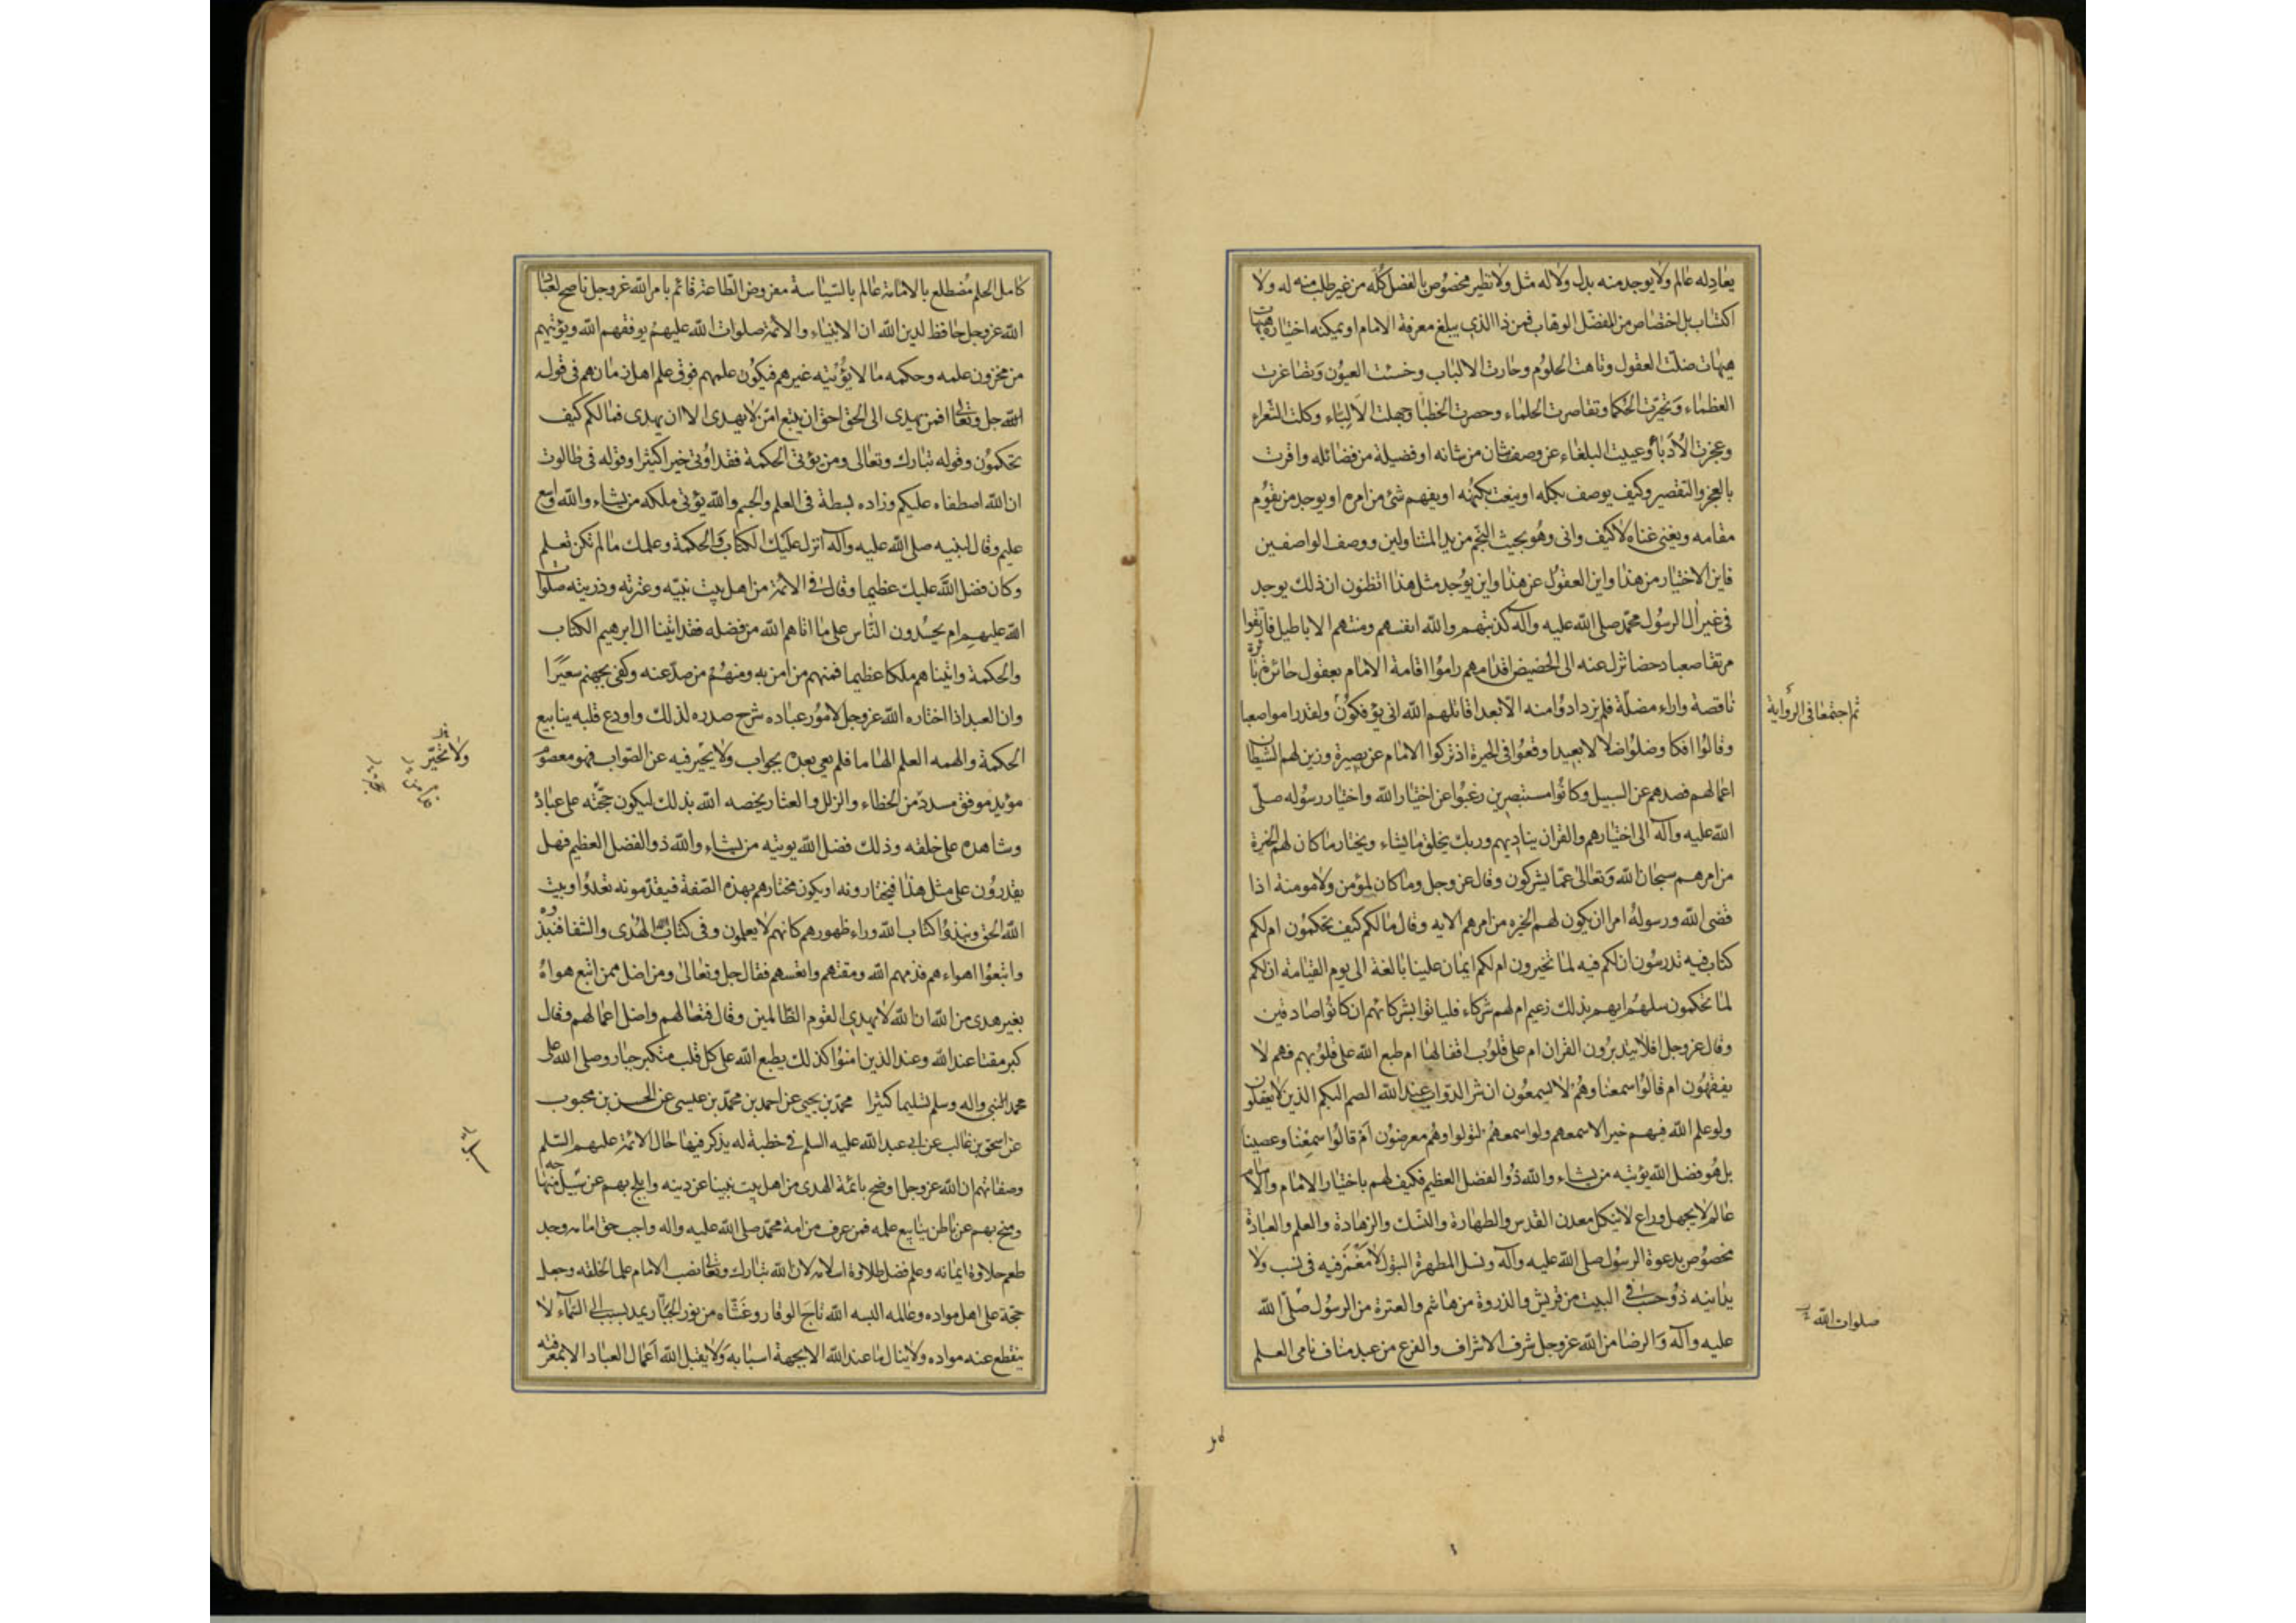 يعادله عالم ولا يوجد منه بدل ولا له مثل ولا نظير مخصوص بالفضل كله من غير طلب منه له ولا
اكتساب بل اختصاص من المفضل الوهاب فمن ذا الذي يبلغ معرفة الامام او يمكنه اختياره هيهات
هيهات ضلت العقول وتاهت الحلوم وحارت الالباب وخسئت العيون وتصاغرت
العظماء وتحيرت الحكما وتقاصرت الحلماء وحصرت الخطبا وجهلت الالباء وكلت الشعراء
وعجزت الادباء وعييت البلغاء عن وصف شان من شانه او فضيلة من فضائله واقرت
بالعجز والتقصير وكيف يوصف بكله او ينعت بكنهه او يفهم شئ من امره او يوجد من يقوم
مقامه ويغنى غناه لا كيف وانى وهو بحيث النجم من يد المتناولين ووصف الواصفين
فاين الاختيار من هذا واين العقول عن هذا واين يوجد مثل هذا اتظنون ان ذلك يوجد
فى غير ال الرسول محمد صلى الله عليه وآله كذبتهم والله انفسهم ومنتهم الاباطيل فارتقوا
مرتقا صعبا دحضا تزل عنه الى الحضيض اقدامهم راموا اقامة الامام بعقول حائرة بائرة
ناقصة واراء مضلة فلم يزدادوا منه الا بعدا قاتلهم الله انى يؤفكون ولقد راموا صعبا
وقالوا افكا وضلوا ضلالا بعيدا وقعوا فى الحيرة اذ تركوا الامام عن بصيرة وزين لهم الشيطان
اعمالهم فصدهم عن السبيل وكانوا مستبصرين رغبوا عن اختيار الله واختيار رسوله صلى
الله عليه وآله الى اختيارهم والقران يناديهم وربك يخلق ما يشاء ويختار ما كان لهم الخيرة
من امرهم سبحان الله وتعالى عما يشركون وقال عز وجل وما كان لمؤمن ولا مومنة اذا
قضى الله ورسوله امرا ان يكون لهم الخيره من امرهم الايه وقال ما لكم كيف تحكمون ام لكم
كتاب فيه تدرسون ان لكم فيه لما تخيرون ام لكم ايمان علينا بالغة الى يوم القيامة ان لكم
لما تحكمون سلهم ايهم بذلك زعيم ام لهم شركاء فلياتوا بشركائهم ان كانوا صادقين
وقال عز وجل افلا يتدبرون القران ام على قلوب اقفالها ام طبع الله على قلوبهم فهم لا
يفقهون ام قالوا سمعنا وهم لا يسمعون ان شر الدواب عند الله الصم البكم الذين لا يعقلون
ولو علم الله فيهم خيرا لاسمعهم ولو اسمعهم لتولوا وهم معرضون ام قالوا سمعنا وعصينا
بل هو فضل الله يؤتيه من يشاء والله ذو الفضل العظيم فكيف لهم باختيار الامام والامام
عالم لا يجهل وراع لا ينكل معدن القدس والطهارة والنسك والزهادة والعلم والعبادة
مخصوص بدعوة الرسول صلى الله عليه وآله ونسل المطهرة البتول لا مغمز فيه فى نسب ولا
يدانيه ذو حسب فى البيت من قريش والذروة من هاشم والعترة من الرسول صلى الله
عليه وآله والرضا من الله عز وجل شرف الاشراف والفرع من عبد مناف نامى العلم
ثم اجتمعا فى الرواية
صلوات الله
كامل الحلم مضطلع بالامامة عالم بالسياسة مفروض الطاعة قائم بامر الله عز وجل ناصح لعباد
الله عز وجل حافظ لدين الله ان الانبياء والائمة صلوات الله عليهم يوفقهم الله ويؤتيهم
من مخزون علمه وحكمه ما لا يؤتيه غيرهم فيكون علمهم فوق علم اهل زمانهم فى قوله
الله جل وتعالى افمن يهدى الى الحق احق ان يتبع امن لا يهدى الا ان يهدى فما لكم كيف
تحكمون وقوله تبارك وتعالى ومن يؤتى الحكمة فقد اوتى خيرا كثيرا وقوله فى طالوت
ان الله اصطفاه عليكم وزاده بسطة فى العلم والجسم والله يؤتى ملكه من يشاء والله واسع
عليم وقال لنبيه صلى الله عليه وآله انزل عليك الكتاب والحكمة وعلمك ما لم تكن تعلم
وكان فضل الله عليك عظيما وقال فى الائمة من اهل بيت نبيه وعترته وذريته صلوات
الله عليهم ام يحسدون الناس على ما اتاهم الله من فضله فقد اتينا ال ابرهيم الكتاب
والحكمة واتيناهم ملكا عظيما فمنهم من امن به ومنهم من صد عنه وكفى بجهنم سعيرا
وان العبد اذا اختاره الله عز وجل لامور عباده شرح صدره لذلك واودع قلبه ينابيع
الحكمة والهمه العلم الهاما فلم يعى بعده بجواب ولا يحير فيه عن الصواب فهو معصوم
مؤيد موفق مسدد من الخطاء والزلل والعثار يخصه الله بذلك ليكون حجته على عباده
وشاهده على خلقه وذلك فضل الله يوتيه من يشاء والله ذو الفضل العظيم فهل
يقدرون على مثل هذا فيختارونه او يكون مختارهم بهذه الصفة فيقدمونه تعدوا وبيت
الله الحق ونبذوا كتاب الله وراء ظهورهم كانهم لا يعلمون وفى كتاب الله الهدى والشفا فنبذوه
واتبعوا اهواءهم فذمهم الله ومقتهم واتعسهم فقال جل وتعالى ومن اضل ممن اتبع هواه
بغير هدى من الله ان الله لا يهدى القوم الظالمين وقال فتعسا لهم واضل اعمالهم وقال
كبر مقتا عند الله وعند الذين امنوا كذلك يطبع الله على كل قلب متكبر جبار وصلى الله على
محمد النبى واله وسلم تسليما كثيرا محمد بن يحيى عن احمد بن محمد بن عيسى عن الحسن بن محبوب
عن اسحق بن غالب عن ابى عبد الله عليه السلم فى خطبة له يذكر فيها حال الائمة عليهم السلم
وصفاتهم ان الله عز وجل اوضح بائمة الهدى من اهل بيت نبينا عن دينه وابلج بهم عن سبيل منهاجه
ومنح بهم عن باطن ينابيع علمه فمن عرف من امة محمد صلى الله عليه واله واجب حق امامه وجد
طعم حلاوة ايمانه وعلم فضل طلاوة اسلامه لان الله تبارك وتعالى نصب الامام علما لخلقه وجعله
حجة على اهل مواده وعالمه البسه الله تاج الوقار وغشاه من نور الجبار يمد بسبب الى السماء لا
ينقطع عنه مواده ولا ينال ما عند الله الا بجهة اسبابه ولا يقبل الله اعمال العباد الا بمعرفته
ولا تخير